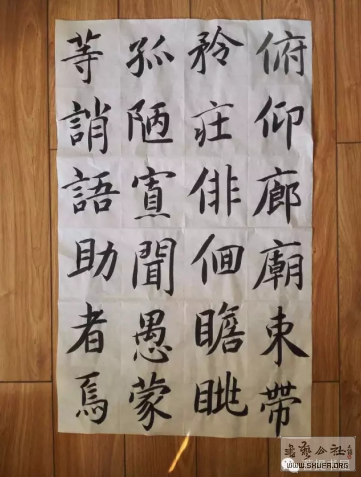 俯仰廊廟束帶
矜莊俳佪瞻眺
孤陋寡聞愚蒙
等誚語助者焉
書藝公社
www.SHUFA.ORG